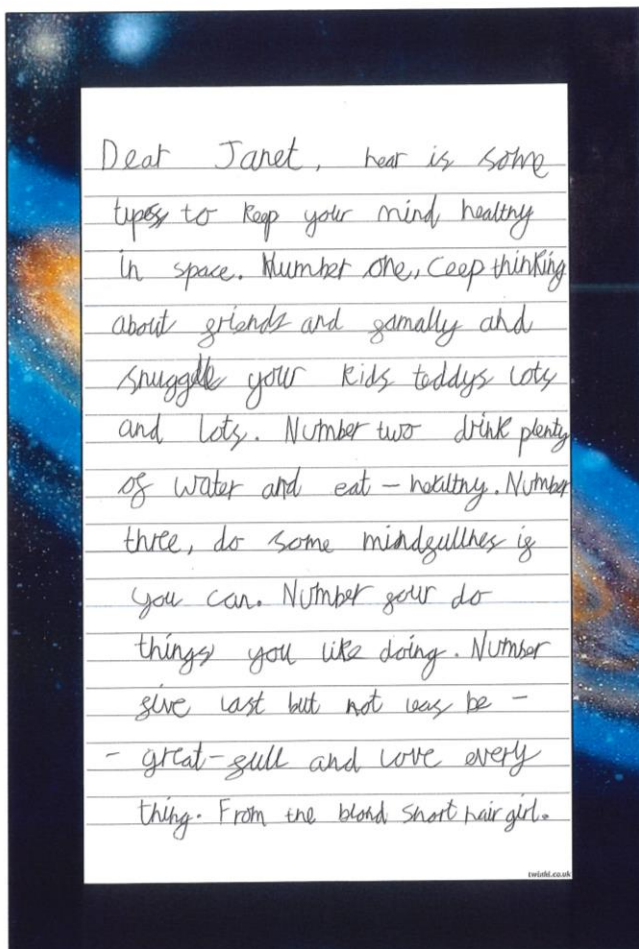 Dear Janet, hear is some
types to keep your mind healthy
in space. Number one, Ceep thinking
about friends and famally and
snuggle your kids teddys lots
and lots. Number two drink plenty
of water and eat - healthy. Number
three, do some mindfullnes if
you can. Number four do
things you like doing. Number
five last but not leas be -
- great-full and love every
thing. From the blond short hair girl.
twinkl.co.uk